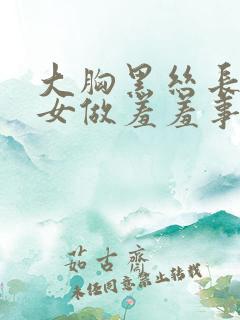 大胸黑丝长
女做羞羞事
茹古斋
未经同意禁止转载